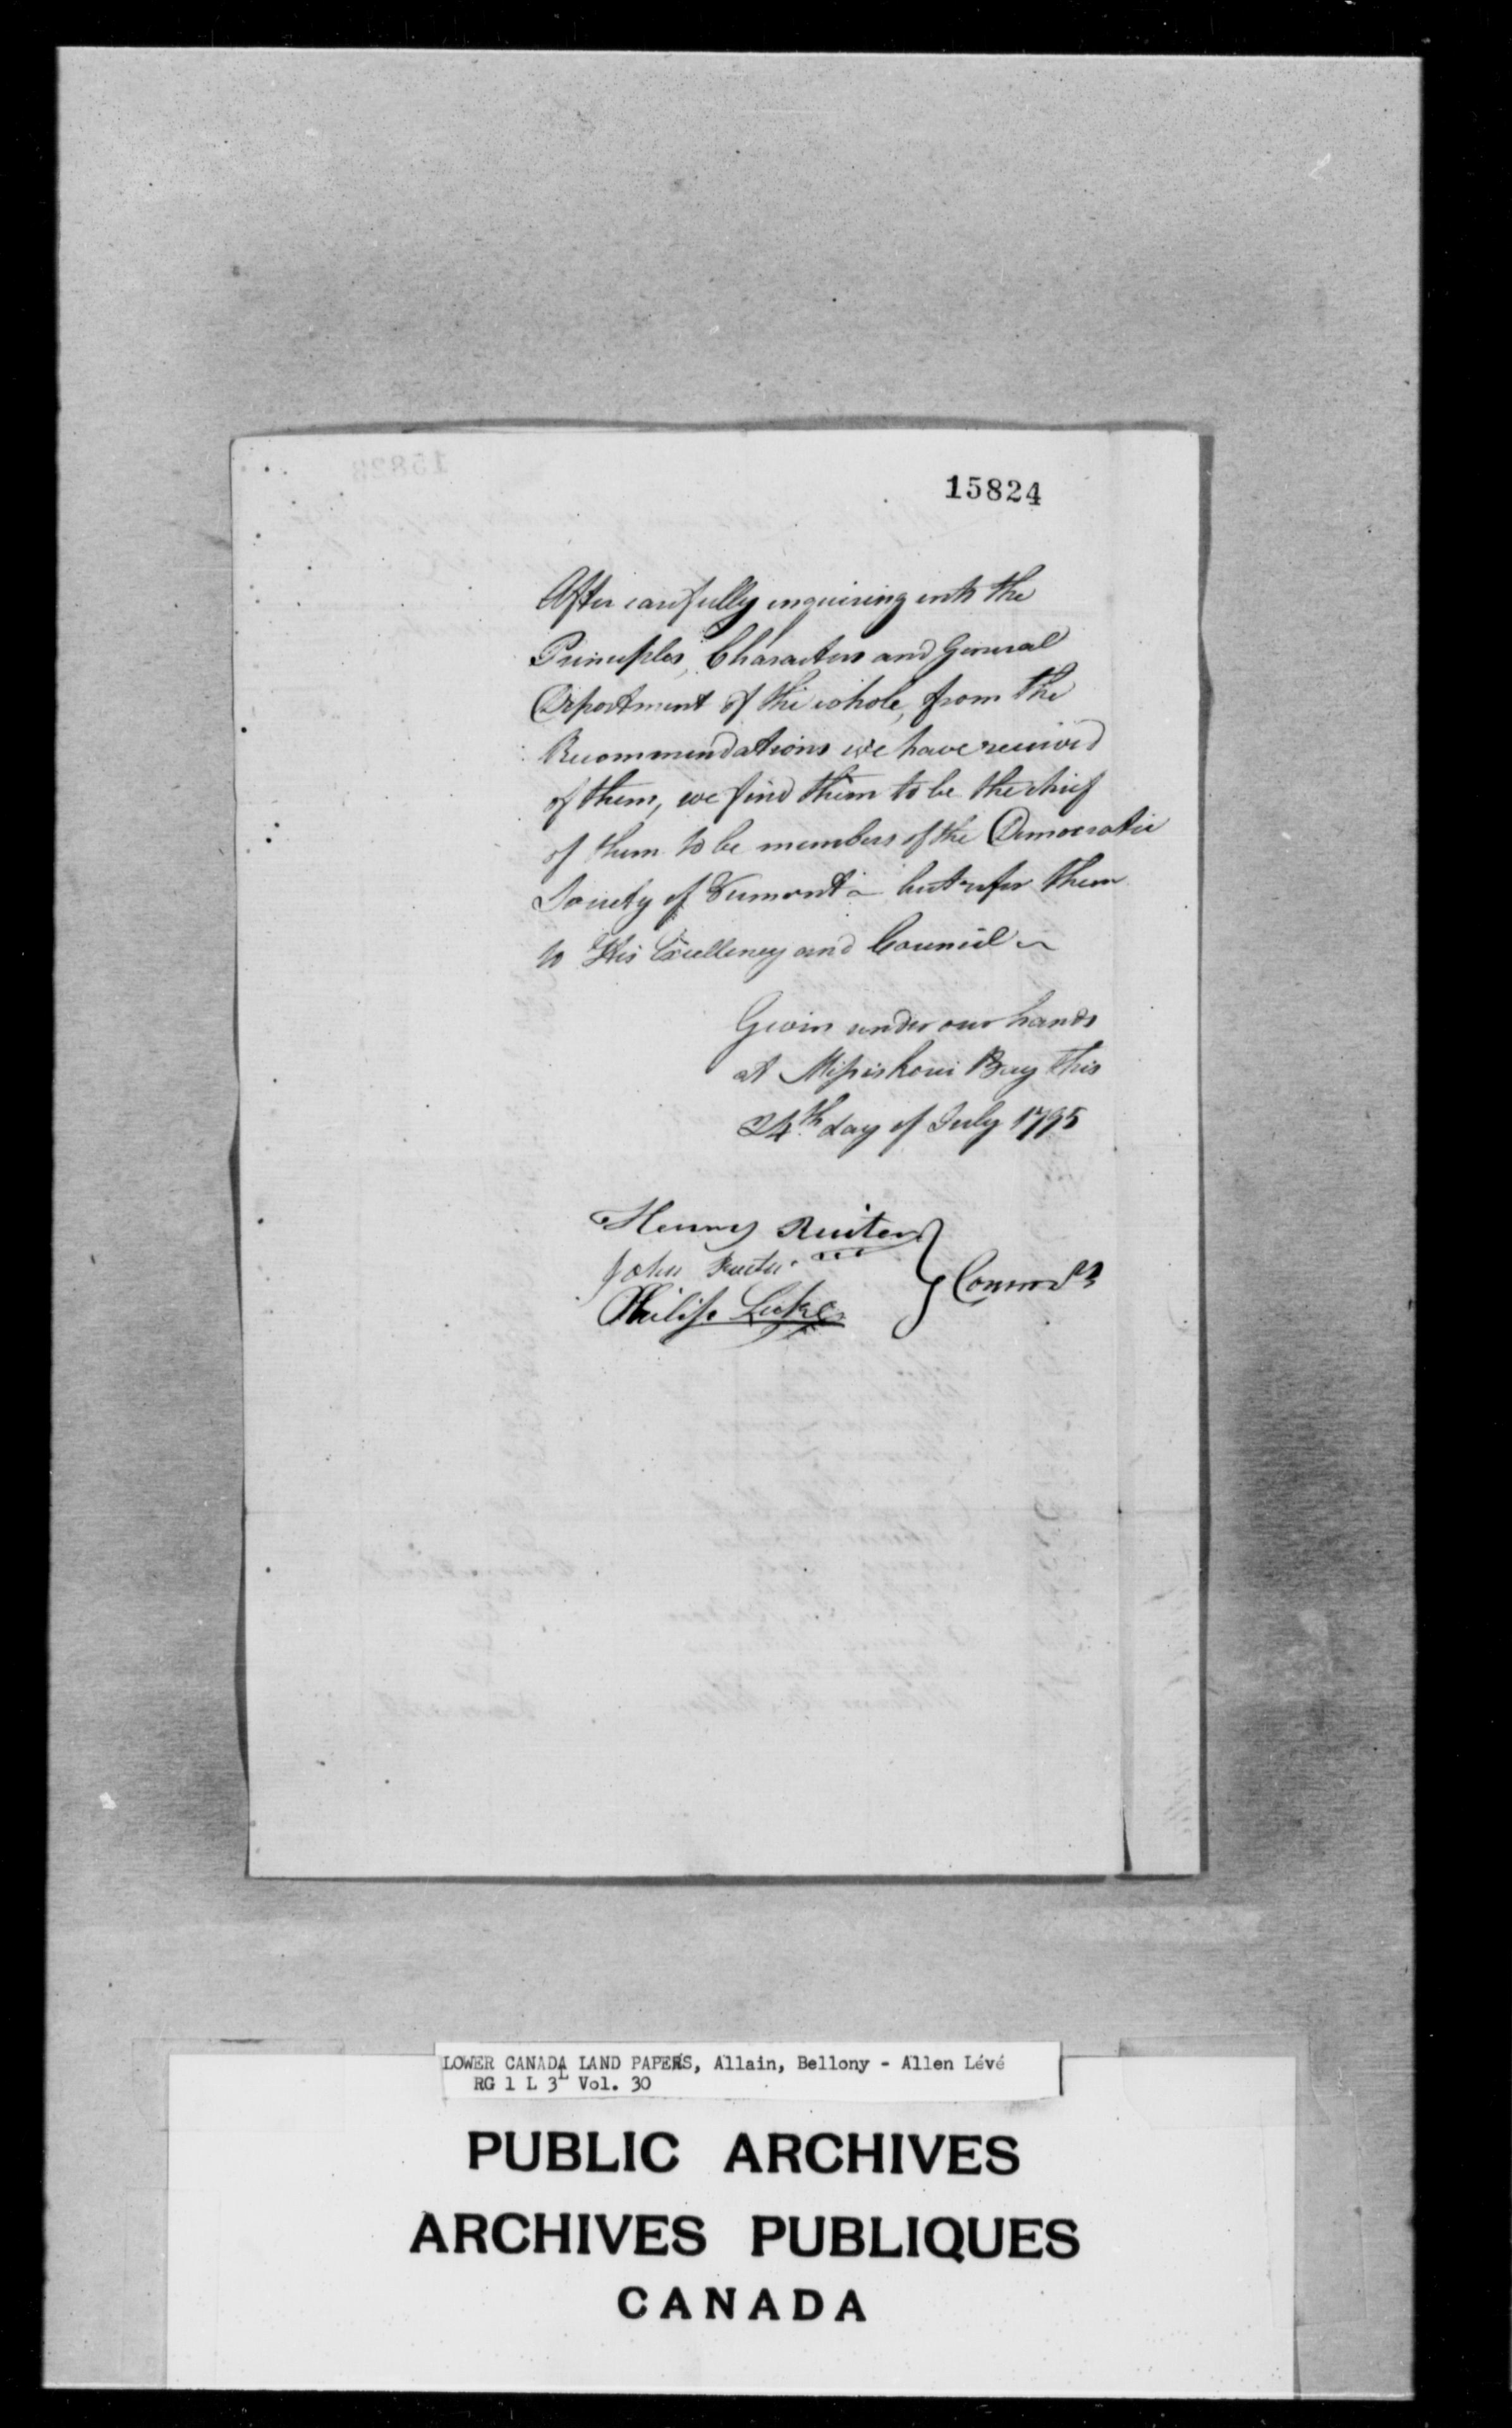 15824
After carefully inquiring into the
Principles, Characters and General
Deportment of the whole, from the
Recommendations we have received
of them, we find them to be the chief
of them to be members of the Democratic
Society of Vermont – but refer them
to His Excellency and Council ~
Given under our hands
at Missiskoui Bay this
24th day of July 1795
Henry Ruiter
John Ruiter
Philip Luke
} Commrs
LOWER CANADA LAND PAPERS, Allain, Bellony - Allen Lévé
RG 1 L 3L Vol. 30
PUBLIC ARCHIVES
ARCHIVES PUBLIQUES
CANADA